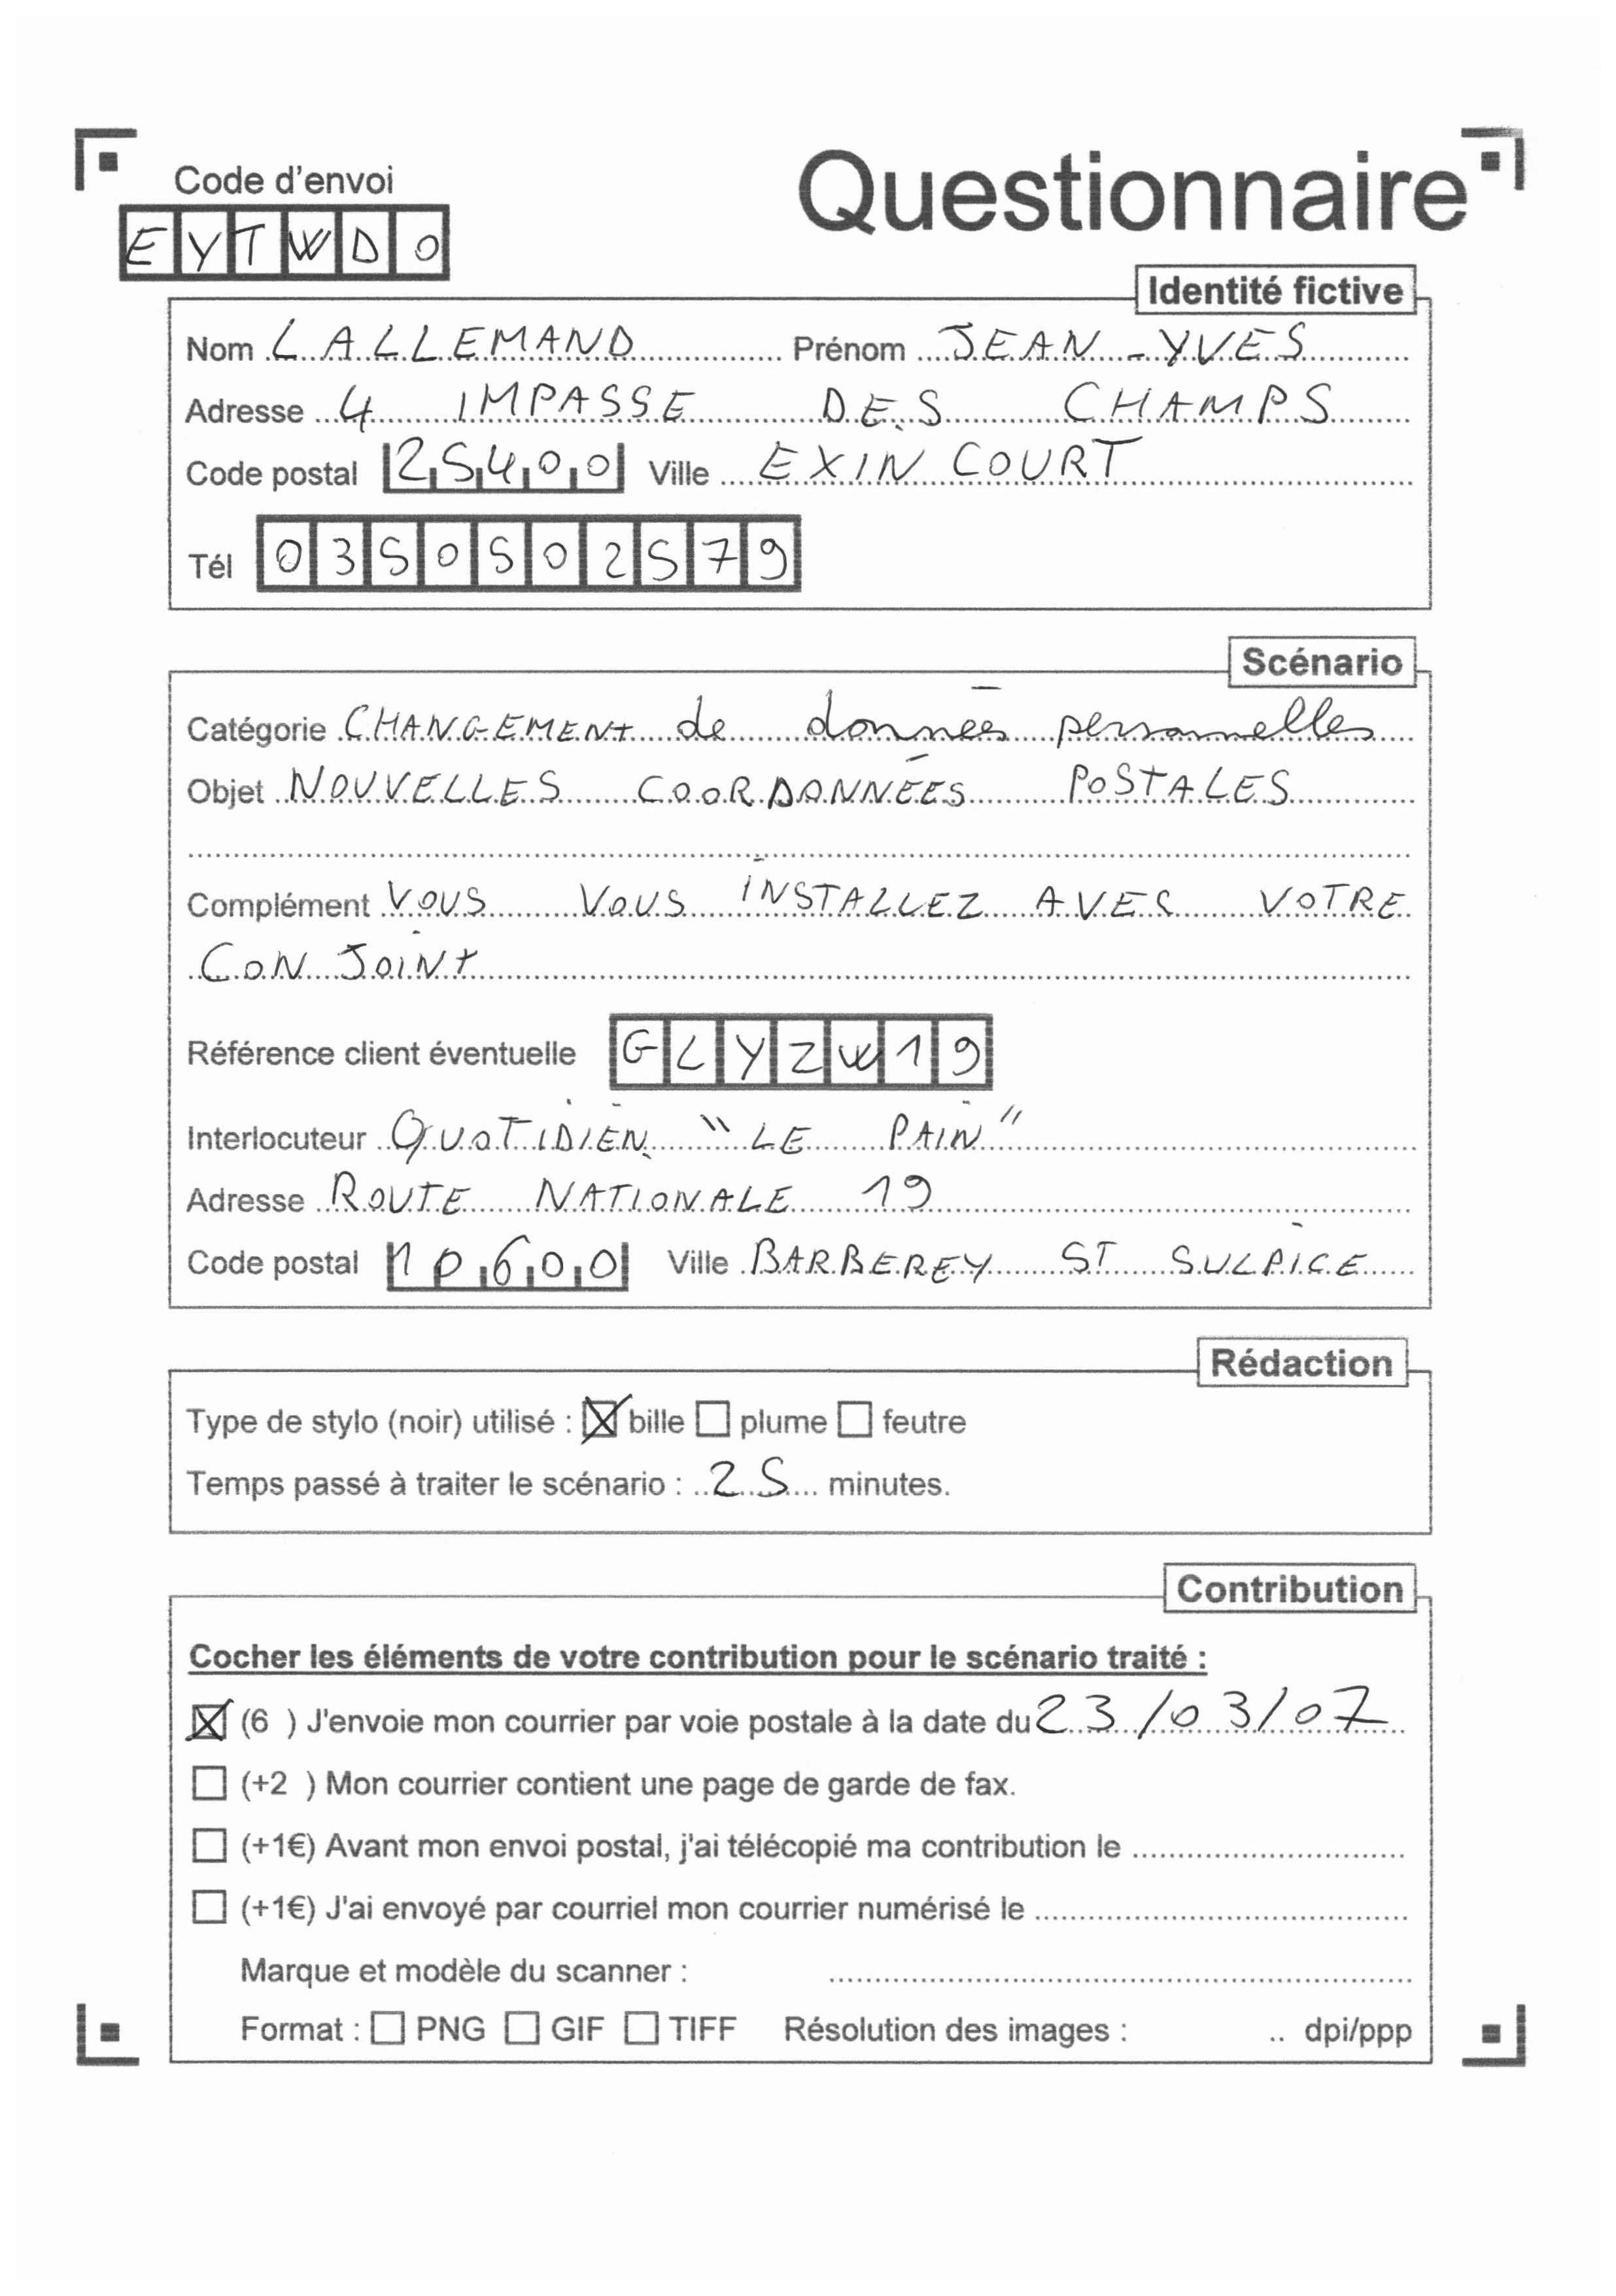 Code d'envoi
Questionnaire
EYTWDO
Identité fictive
Nom LALLEMAND Prénom JEAN-YVES
Adresse 4 IMPASSE DES CHAMPS
Code postal 25400 Ville EXINCOURT
Tél 0350502579
Scénario
Catégorie CHANGEMENT de données personnelles
Objet NOUVELLES COORDONNÉES POSTALES
Complément VOUS VOUS INSTALLEZ AVEC VOTRE
CONJOINT
Référence client éventuelle GLYZW19
Interlocuteur QUOTIDIEN "LE PAIN"
Adresse ROUTE NATIONALE 19
Code postal 10600 Ville BARBEREY ST SULPICE
Rédaction
Type de stylo (noir) utilisé : ☒ bille ☐ plume ☐ feutre
Temps passé à traiter le scénario : 25 minutes.
Contribution
Cocher les éléments de votre contribution pour le scénario traité :
☒ (6 ) J'envoie mon courrier par voie postale à la date du 23/03/07
☐ (+2 ) Mon courrier contient une page de garde de fax.
☐ (+1€) Avant mon envoi postal, j'ai télécopié ma contribution le
☐ (+1€) J'ai envoyé par courriel mon courrier numérisé le
Marque et modèle du scanner :
Format : ☐ PNG ☐ GIF ☐ TIFF Résolution des images : .. dpi/ppp